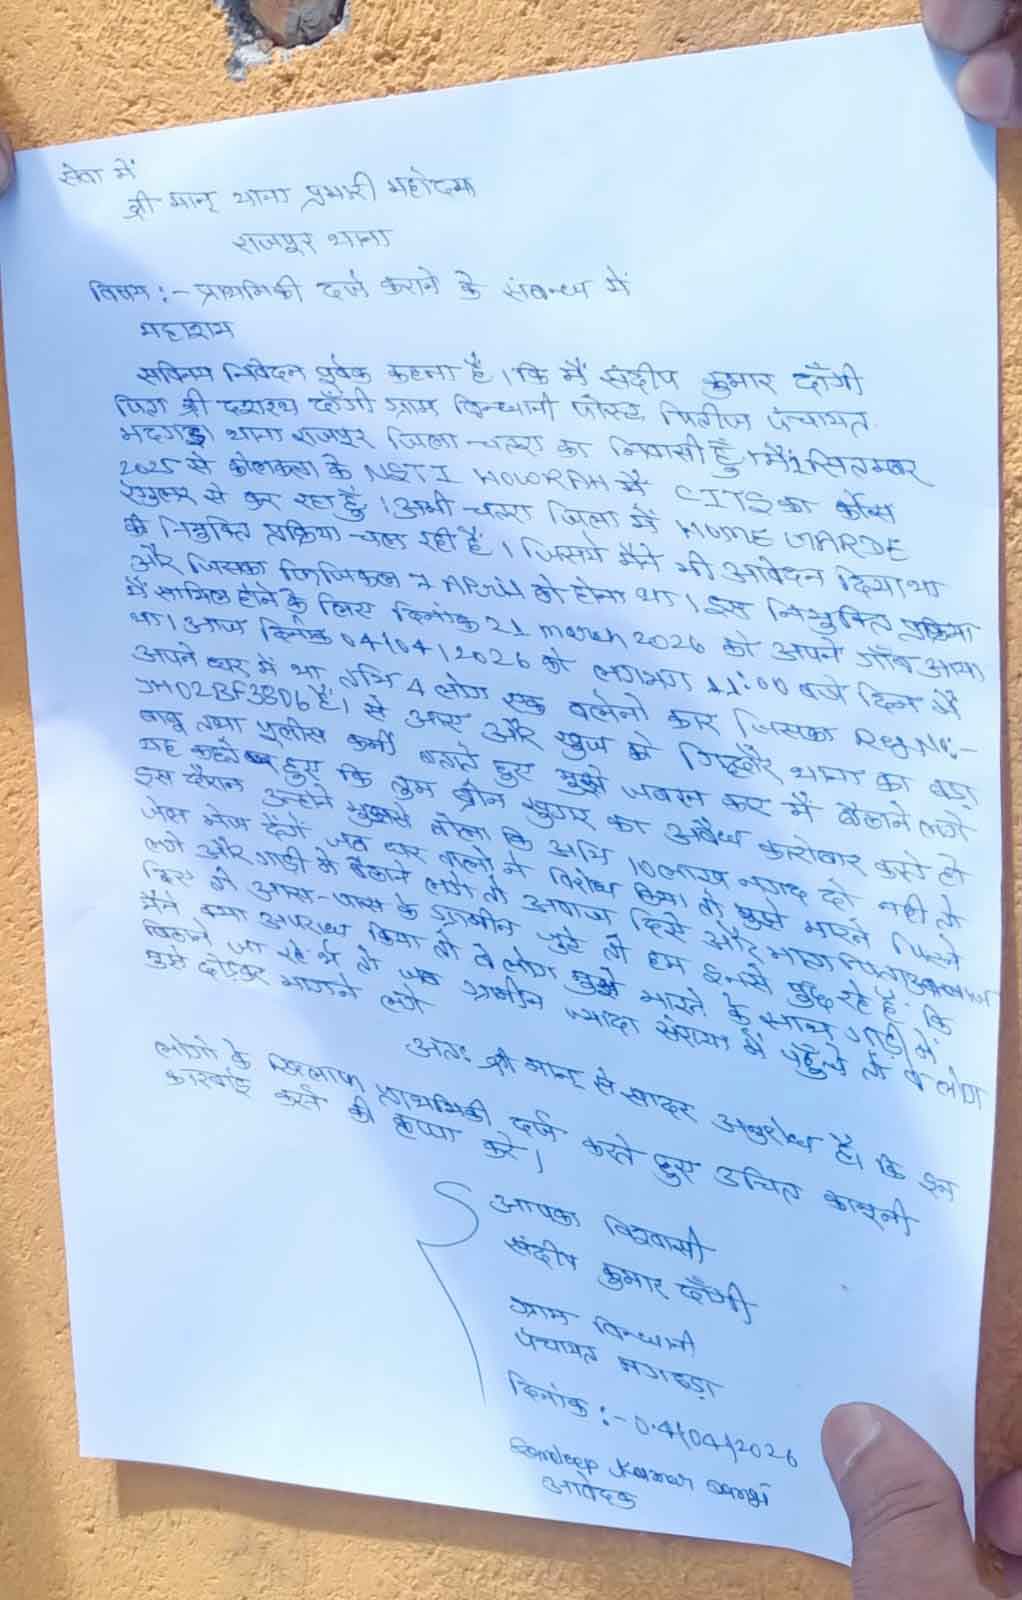 सेवा में
श्री मान् थाना प्रभारी महोदय
राजपुर थाना
विषय :- प्राथमिकी दर्ज कराने के संबन्ध में
महाशय
सविनय निवेदन पूर्वक कहना है। कि मैं संदीप कुमार दाँगी
पिता श्री दशरथ दाँगी ग्राम विन्धानी पोस्ट पितीज पंचायत
मदगड़ा थाना राजपुर जिला-चतरा का निवासी हूँ। मैं 1 सितम्बर
2025 से कोलकता के NSTI HOWRAH में CITS का कोर्स
रेगुलर से कर रहा हूँ। अभी चतरा जिला में HOME GARDE
की नियुक्ति प्रक्रिया चल रही है। जिसमें मैंने भी आवेदन दिया था
और जिसका फिजिकल 7 April को होना था। इस नियुक्ति प्रक्रिया
में सामिल होने के लिए दिनांक 21 march 2026 को अपने गाँव आया
था। आज दिनांक 04/04/2026 को लगभग 11:00 बजे दिन में
अपने घर में था तभि 4 लोग एक बलेनो कार जिसका Reg No:-
JH02BF3806 है। से आए और खुद को गिद्धौर थाना का बड़ा
बाबू तथा पुलीस कर्मी बताते हुए मुझे जबरन कार में बैठाने लगे
यह कहते हुए कि तुम ब्रौन शुगर का अवैध कारोबार करते हो
इस दौरान उन्होने मुझसे बोला कि अभि 10 लाख नगद दो नही तो
जेल भेज देंगें जब घर वालों ने विरोध किया तो मुझे मारने पिटने
लगे और गाड़ी में बैठाने लगे तो आवाज दिये और माता पिता
किए तो आस-पास के ग्रामीन जुटे तो हम इनसे पुछ रहे हैं कि
मैंने क्या अपराध किया तो वे लोग मुझे मारने के साथ गाड़ी में
बिठाने जा रहे थे तो जब ग्रामीन ज्यादा संख्या में पहुँचे तो वे लोग
मुझे छोड़कर भागने लगे
अतः श्री मान् से सादर अनुरोध है। कि इन
लोगो के खिलाफ प्राथमिकी दर्ज करते हुए उचित कानूनी
कारवाई करने की कृप्या करे।
आपका विश्वासी
संदीप कुमार दाँगी
ग्राम विन्धानी
पंचायत मदगड़ा
दिनांक :- 04/04/2026
Sandeep Kumar Dangi
आवेदक